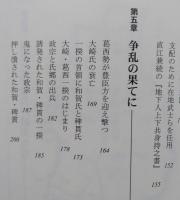 支配のために在地武士らを任用 152
直江兼続の『地下人上下共身持之書』 155
第五章 争乱の果てに
葛西勢が豊臣方を迎え撃つ 164
大崎氏の衰亡 169
一揆の首領に和賀氏と稗貫氏 173
大崎・葛西一揆のはじまり 177
政宗と氏郷の出兵 182
誘発された和賀・稗貫の一揆 185
鬼になった政宗 187
押し潰された和賀・稗貫 200